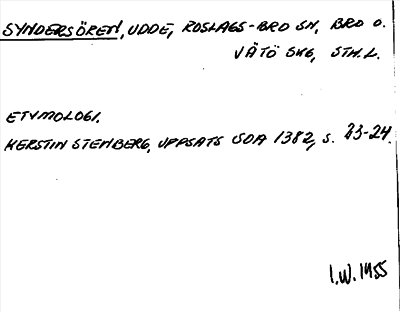 SYNDERSÖREN, UDDE, ROSLAGS-BRO SN, BRO O.
VÄTÖ SKG, STH.L.
ETYMOLOGI.
KERSTIN STENBERG, UPPSATS SOA 1382, S. 23-24.
I.W. 1955